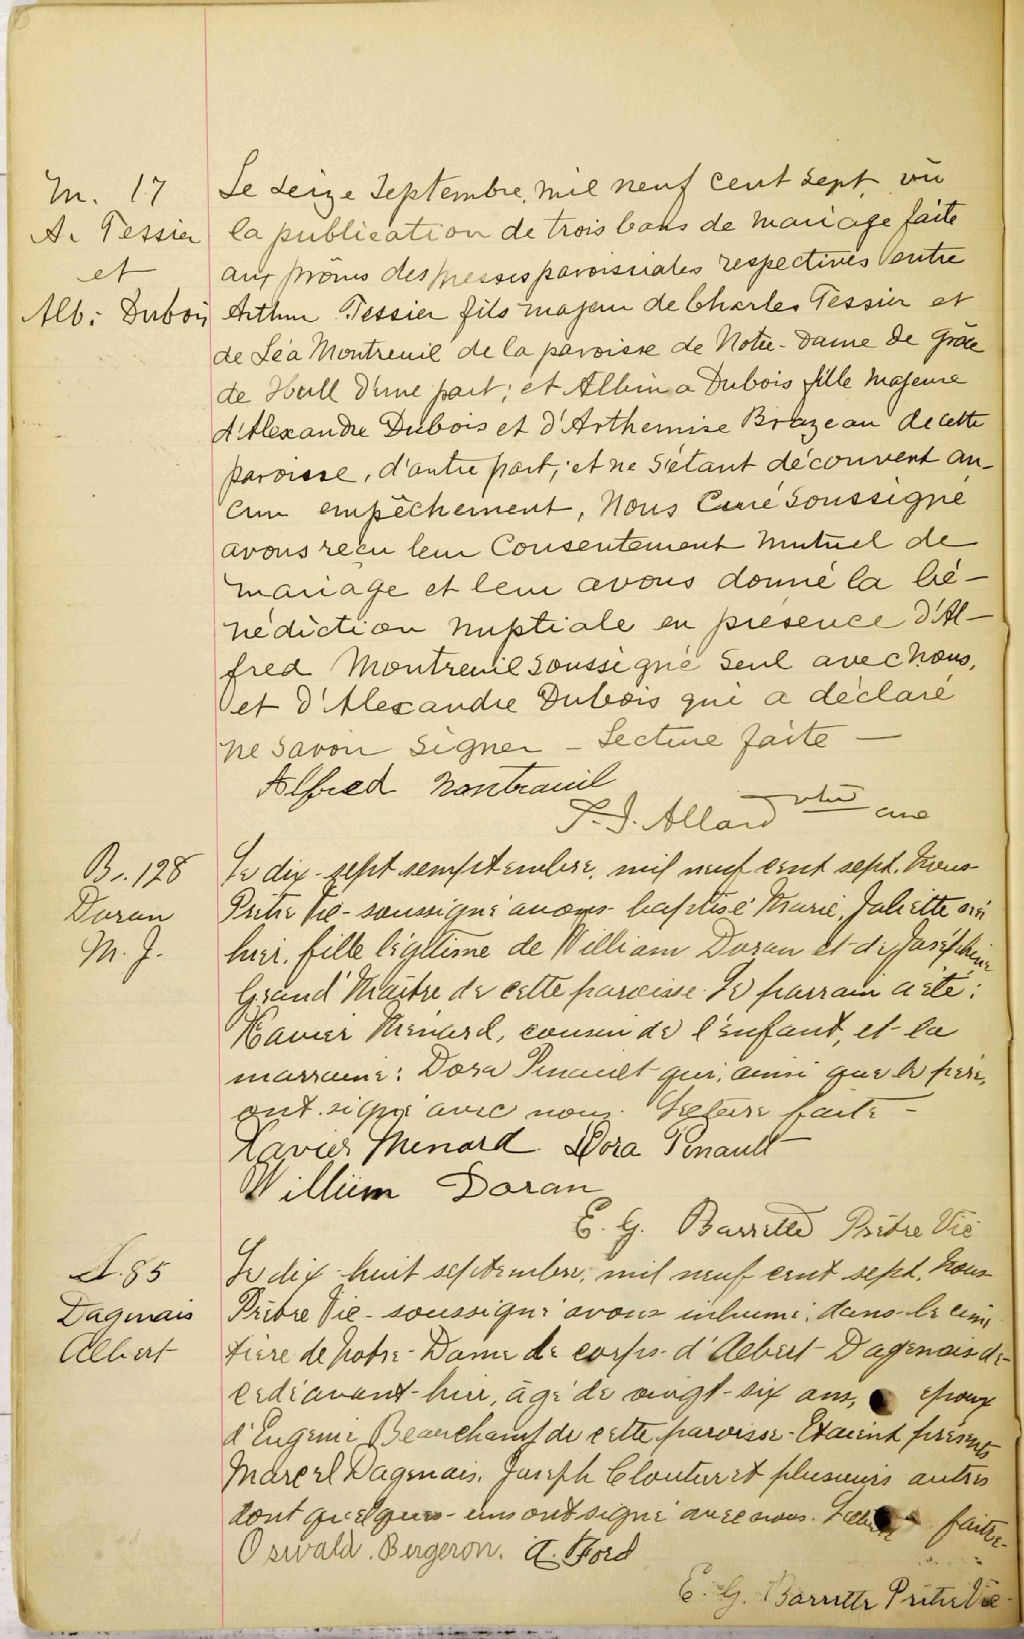 M. 17
A. Tessier
et
Alb. Dubois
Le seize Septembre, mil neuf cent sept vû
la publication de trois bans de mariage faite
aux prônes des messes paroissiales respectives entre
Arthur Tessier fils majeur de Charles Tessier et
de Léa Montreuil de la paroisse de Notre-Dame de Grâce
de Hull d'une part; et Albina Dubois fille majeure
d'Alexandre Dubois et d'Arthemise Brazeau de cette
paroisse, d'autre part; et ne s'étant découvert au-
cun empêchement, Nous Curé Soussigné
avons reçu leur Consentement Mutuel de
mariage et leur avons donné la bé-
nédiction nuptiale en présence d'Al-
fred Montreuil soussigné seul avec nous,
et d'Alexandre Dubois qui a déclaré
ne savoir signer - Lecture faite -
Alfred Montreuil
Allard ptre curé
B. 128
Doran
M. J.
Le dix-sept semptembre, mil neuf cent sept. Nous
Prêtre Vic- soussigné avons baptisé Marie, Juliette née
hier, fille légitime de William Doran et de Joséphine
Grand'Maître de cette paroisse. Le parrain a été:
Xavier Ménard, cousin de l'enfant, et la
marraine: Dora Pinault qui, ainsi que le père,
ont signé avec nous. Lecture faite -
Xavier Menard Dora Pinault
William Doran
E. G. Barrette Prêtre Vic
S. 85
Dagenais
Albert
Le dix-huit septembre, mil neuf cent sept, Nous
Prêtre Vic- soussigné avons inhumé, dans le cime
tière de Notre-Dame le corps d'Albert Dagenais dé-
cédé avant-hier, âgé de vingt-six ans, époux
d'Eugenie Beauchamp de cette paroisse. Etaient présents
Marcel Dagenais, Joseph Cloutier et plusieurs autres
dont quelques-uns ont signé avec nous. Lecture faite-
Oswald Bergeron. A. Ford
E. G. Barrette Prêtre Vic-